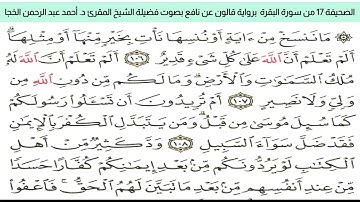 الصحيفة 17 من سورة البقرة برواية قالون عن نافع بصوت فضيلة الشيخ المقرئ د. أحمد عبد الرحمن الخجا
مَا نَنسَخْ مِنْ ءَايَةٍ أَوْ نُنسِهَا نَأْتِ بِخَيْرٍ مِّنْهَا أَوْ مِثْلِهَا
أَلَمْ تَعْلَمْ أَنَّ اَللَّهَ عَلَىٰ كُلِّ شَيْءٍ قَدِيرٌ ١٠٦ أَلَمْ تَعْلَمْ أَنَّ اَللَّهَ لَهُ
مُلْكُ السَّمَٰوَٰتِ وَالْأَرْضِ وَمَا لَكُم مِّن دُونِ اِللَّهِ مِنْ
وَلِيٍّ وَلَا نَصِيرٍ ١٠٧ أَمْ تُرِيدُونَ أَن تَسْـَٔلُوا رَسُولَكُمْ
كَمَا سُئِلَ مُوسَىٰ مِن قَبْلُ وَمَنْ يَتَبَدَّلِ الْكُفْرَ بِالْإِيمَٰنِ
فَقَد ضَّلَّ سَوَآءَ السَّبِيلِ ١٠٨ وَدَّ كَثِيرٌ مِّنْ أَهْلِ
الْكِتَٰبِ لَوْ يَرُدُّونَكُم مِّنۢ بَعْدِ إِيمَٰنِكُمْ كُفَّارًا حَسَدًا
مِّنْ عِندِ أَنفُسِهِم مِّنۢ بَعْدِ مَا تَبَيَّنَ لَهُمُ الْحَقُّ فَاعْفُوا